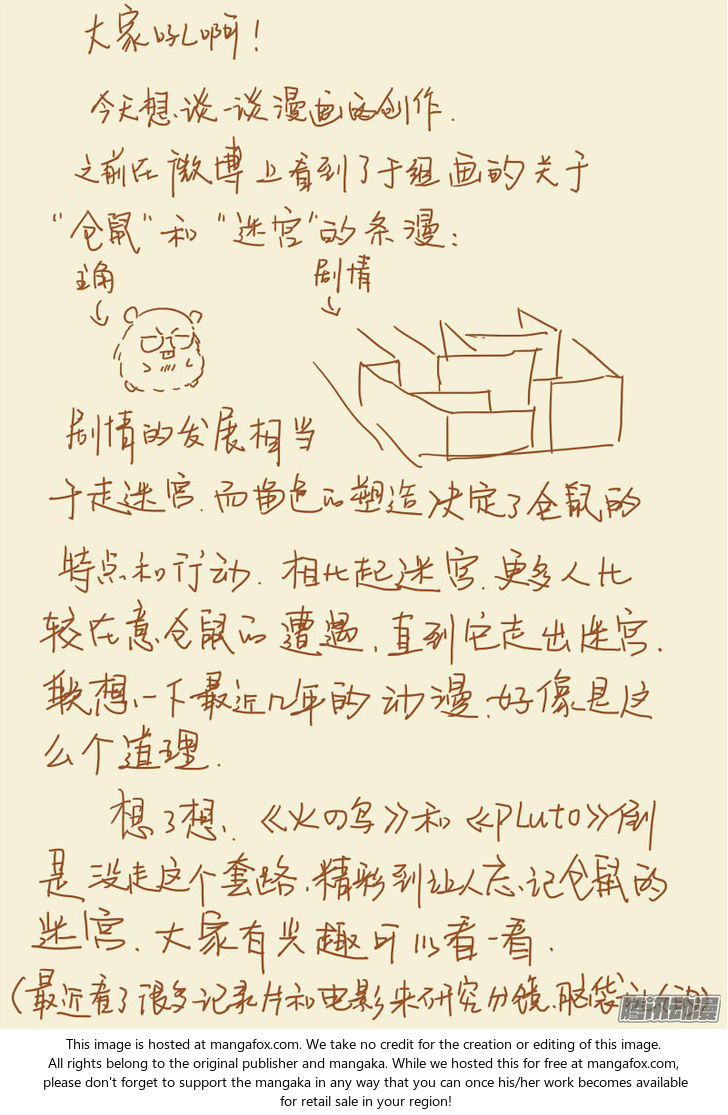 大家好啊!
今天想谈一谈漫画的创作.
之前在微博上看到了于组画的关于
“仓鼠”和“迷宫”的条漫:
主角
剧情
剧情的发展相当
于走迷宫.而角色的塑造决定了仓鼠的
特点和行动.相比起迷宫.更多人比
较在意仓鼠的遭遇,直到它走出迷宫.
联想一下最近几年的动漫.好像是这
么个道理.
想了想、《火の鸟》和《PLUTO》倒
是没走这个套路.精彩到让人忘记仓鼠的
迷宫.大家有兴趣可以看一看.
(最近看了很多记录片和电影来研究分镜.脑袋
腾讯动漫
This image is hosted at mangafox.com. We take no credit for the creation or editing of this image.
All rights belong to the original publisher and mangaka. While we hosted this for free at mangafox.com,
please don't forget to support the mangaka in any way that you can once his/her work becomes available
for retail sale in your region!